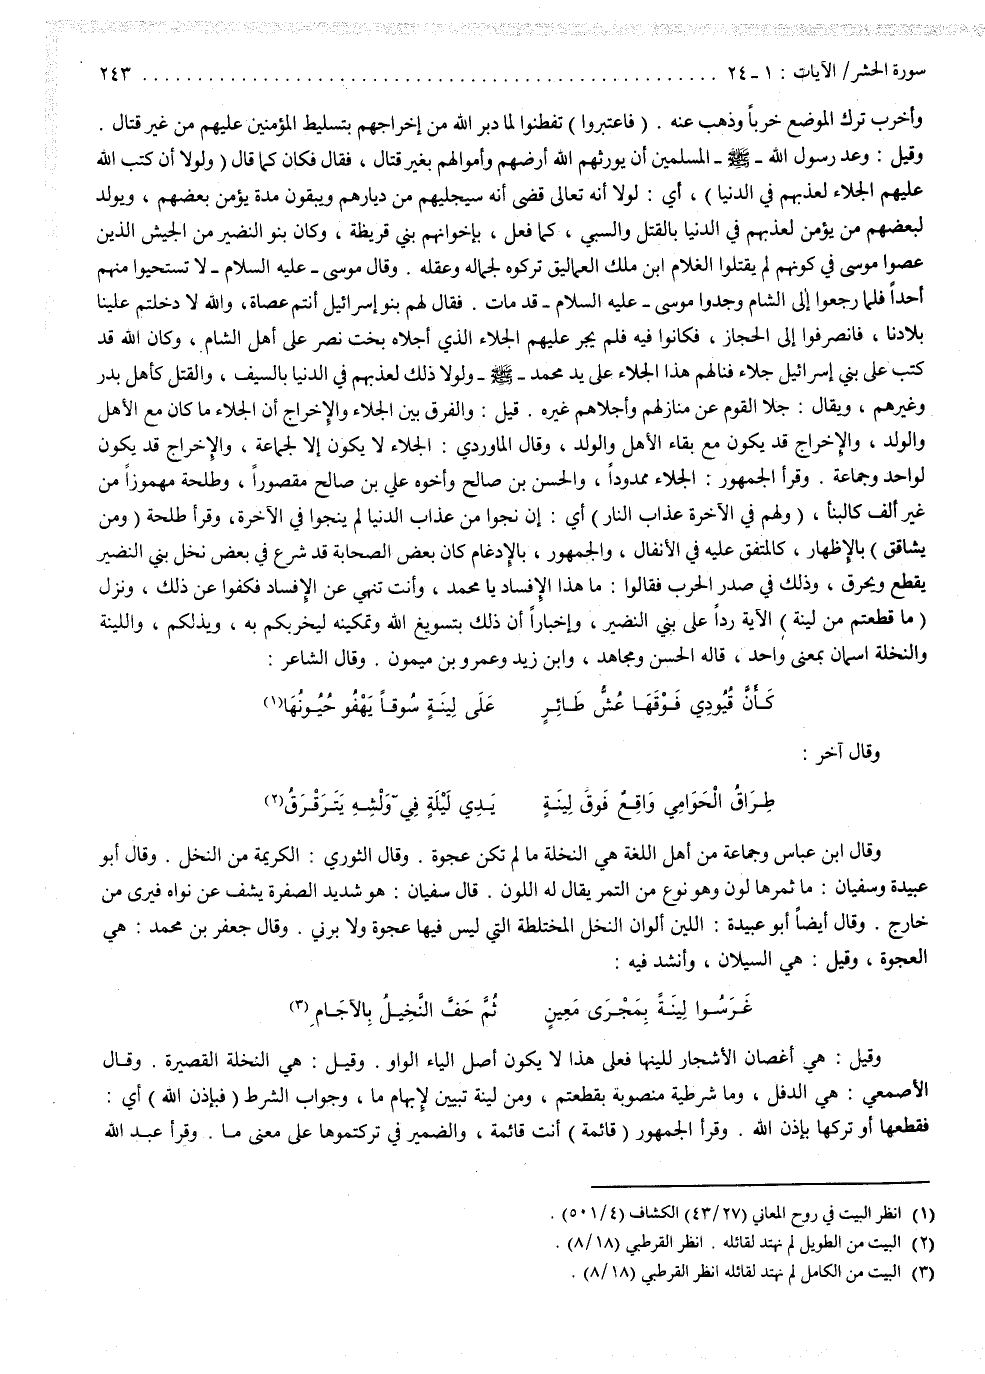 سورة الحشر / الآيات : ١ ـ ٢٤ .................................................... ٢٤٣
وأخرب ترك الموضع خرباً وذهب عنه . ( فاعتبروا ) تفطنوا لما دبر الله من إخراجهم بتسليط المؤمنين عليهم من غير قتال .
وقيل : وعد رسول الله ـ ﷺ ـ المسلمين أن يورثهم الله أرضهم وأموالهم بغير قتال ، فقال فكان كما قال ( ولولا أن كتب الله
عليهم الجلاء لعذبهم في الدنيا ) ، أي : لولا أنه تعالى قضى أنه سيجليهم من ديارهم ويبقون مدة يؤمن بعضهم ، ويولد
لبعضهم من يؤمن لعذبهم في الدنيا بالقتل والسبي ، كما فعل ، بإخوانهم بني قريظة ، وكان بنو النضير من الجيش الذين
عصوا موسى في كونهم لم يقتلوا الغلام ابن ملك العماليق تركوه لجماله وعقله . وقال موسى ـ عليه السلام ـ لا تستحيوا منهم
أحداً فلما رجعوا إلى الشام وجدوا موسى ـ عليه السلام ـ قد مات . فقال لهم بنو إسرائيل أنتم عصاة، والله لا دخلتم علينا
بلادنا ، فانصرفوا إلى الحجاز ، فكانوا فيه فلم يجر عليهم الجلاء الذي أجلاه بخت نصر على أهل الشام ، وكان الله قد
كتب على بني إسرائيل جلاء فنالهم هذا الجلاء على يد محمد ـ ﷺ ـ ولولا ذلك لعذبهم في الدنيا بالسيف ، والقتل كأهل بدر
وغيرهم ، ويقال : جلا القوم عن منازلهم وأجلاهم غيره . قيل : والفرق بين الجلاء والإخراج أن الجلاء ما كان مع الأهل
والولد ، والإخراج قد يكون مع بقاء الأهل والولد ، وقال الماوردي : الجلاء لا يكون إلا لجماعة ، والإخراج قد يكون
لواحد وجماعة . وقرأ الجمهور : الجلاء ممدوداً ، والحسن بن صالح وأخوه علي بن صالح مقصوراً ، وطلحة مهموزاً من
غير ألف كالبنأ ، ( ولهم في الآخرة عذاب النار ) أي : إن نجوا من عذاب الدنيا لم ينجوا في الآخرة، وقرأ طلحة ( ومن
يشاقق ) بالإظهار ، كالمتفق عليه في الأنفال ، والجمهور ، بالإدغام كان بعض الصحابة قد شرع في بعض نخل بني النضير
يقطع ويحرق ، وذلك في صدر الحرب فقالوا : ما هذا الإفساد يا محمد ، وأنت تنهي عن الإفساد فكفوا عن ذلك ، ونزل
( ما قطعتم من لينة ) الآية رداً على بني النضير ، وإخباراً أن ذلك بتسويغ الله وتمكينه ليخربكم به ، ويذلكم ، واللينة
والنخلة اسمان بمعنى واحد ، قاله الحسن ومجاهد ، وابن زيد وعمرو بن ميمون . وقال الشاعر :
كَأَنَّ قُيُودِي فَوْقَهَا عُشُّ طَائِرٍ    عَلَى لِينَةٍ سُوقاً يَهْفُو حُيُونُهَا(١)
وقال آخر :
طِرَاقُ الْحَوَامِي وَاقِعٌ فَوقَ لِينَةٍ    يَدِي لَيْلَةٍ فِي وَلْشِهِ يَتَرَقْرَقُ(٢)
وقال ابن عباس وجماعة من أهل اللغة هي النخلة ما لم تكن عجوة . وقال الثوري : الكريمة من النخل . وقال أبو
عبيدة وسفيان : ما ثمرها لون وهو نوع من التمر يقال له اللون . قال سفيان : هو شديد الصفرة يشف عن نواه فيرى من
خارج . وقال أيضاً أبو عبيدة : اللين ألوان النخل المختلطة التي ليس فيها عجوة ولا برني . وقال جعفر بن محمد : هي
العجوة ، وقيل : هي السيلان ، وأنشد فيه :
غَرَسُوا لِينَةً بِمَجْرَى مَعِينٍ    ثُمَّ حَفَّ النَّخِيلُ بِالآجَامِ(٣)
وقيل : هي أغصان الأشجار للينها فعلى هذا لا يكون أصل الياء الواو . وقيل : هي النخلة القصيرة . وقال
الأصمعي : هي الدفل ، وما شرطية منصوبة بقطعتم ، ومن لينة تبيين لإبهام ما ، وجواب الشرط ( فبإذن الله ) أي :
فقطعها أو تركها بإذن الله . وقرأ الجمهور ( قائمة ) أنت قائمة ، والضمير في تركتموها على معنى ما . وقرأ عبد الله
(١) انظر البيت في روح المعاني (٤٣/٢٧) الكشاف (٥٠١/٤) .
(٢) البيت من الطويل لم نهتد لقائله . انظر القرطبي (٨/١٨) .
(٣) البيت من الكامل لم نهتد لقائله انظر القرطبي (٨/١٨) .